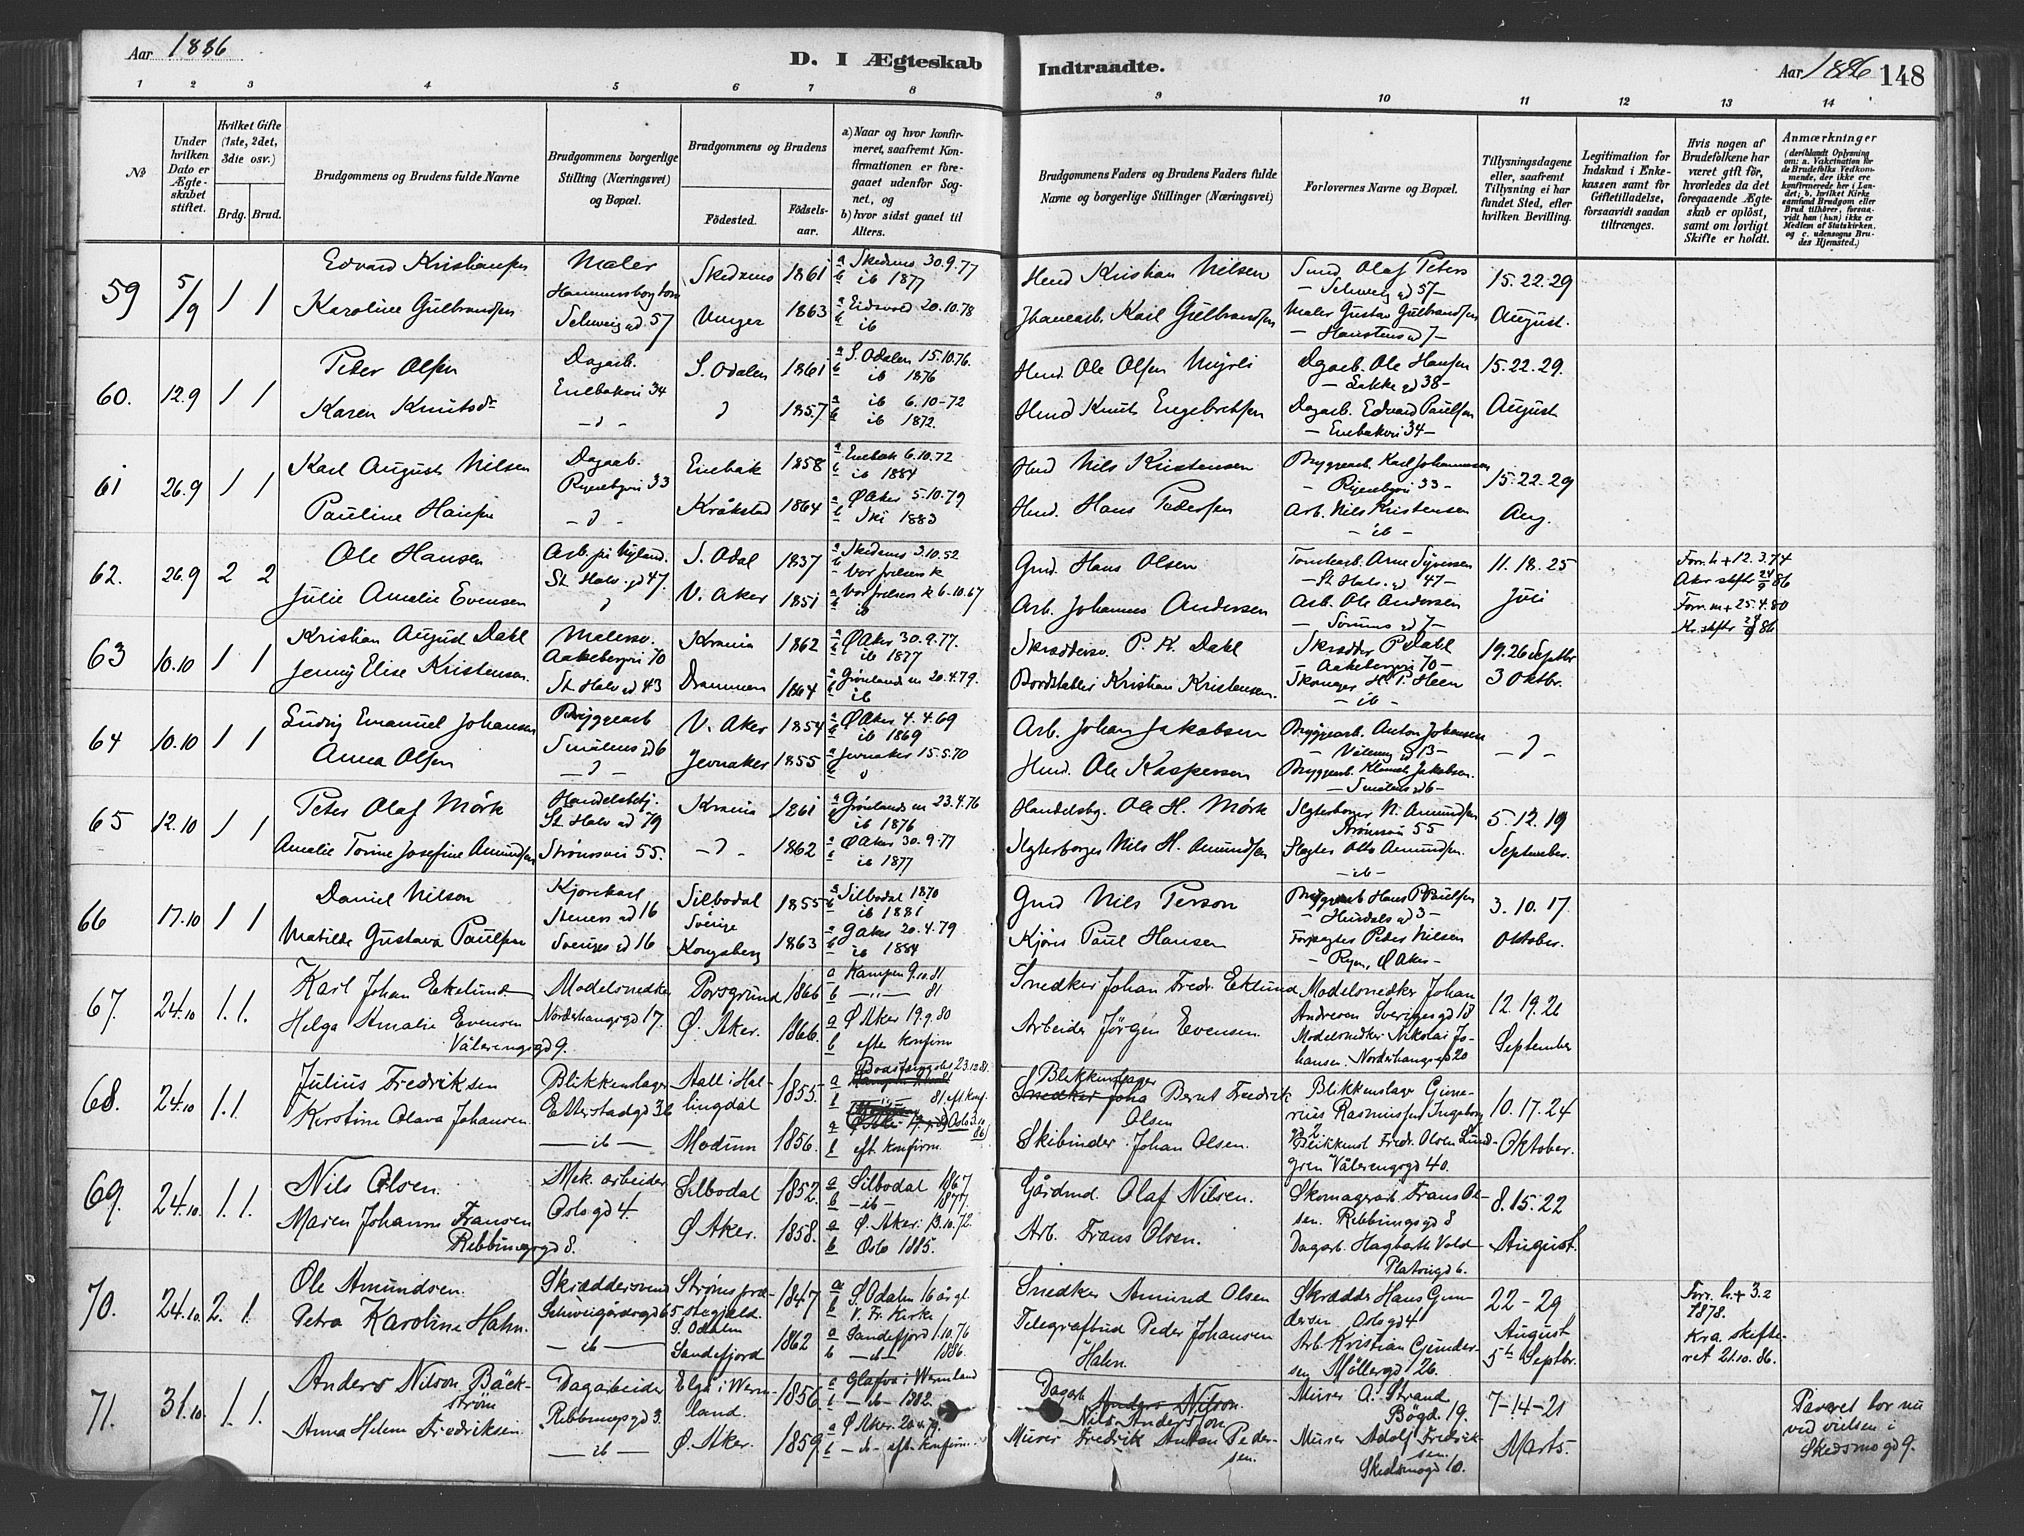 Aar 1886
D. I Ægteskab Indtraadte.
Aar 1886 148
1 2 3 4 5 6 7 8 9 10 11 12 13 14
No
Under hvilken Dato er Ægteskabet stiftet.
Hvilket Gifte (1ste, 2det, 3die osv.)
Brdg. Brud.
Brudgommens og Brudens fulde Navne
Brudgommens borgerlige Stilling (Næringsvei) og Bopæl.
Brudgommens og Brudens
Fødested. Fødselsaar.
a) Naar og hvor konfirmeret, saafremt Konfirmationen er foregaaet udenfor Sognet, og
b) hvor sidst gaaet til Alters.
Brudgommens Faders og Brudens Faders fulde Navne og borgerlige Stillinger (Næringsvei)
Forlovernes Navne og Bopæl.
Tillysningsdagene eller, saafremt Tillysning ei har fundet Sted, efter hvilken Bevilling.
Legitimation for Indskud i Enkekassen samt for Giftetilladelse, forsaavidt saadan tiltrænges.
Hvis nogen af Brudefolkene har været gift før, hvorledes da det foregaaende Ægteskab er opløst, samt om lovligt Skifte er holdt.
Anmærkninger
(deriblandt Oplysning om: a. Vakcination for de Brudefolks Vedkommende, der ikke ere konfirmerede her i Landet; b. hvilket Kirkesamfund Brudgom eller Brud tilhører, forsaavidt han (hun) ikke er Medlem af Statskirken, og c. udensogns Brudes Hjemsted.)
59 5/9 1 1 Edvard Kristiansen Maler Skedsmo 1861 a Skedsmo 30.9.77 b ib 1877
Hmd Kristian Nilsen Smd Olaf Peters 15.22.29
Schweig gd 57
Karoline Gulbrandsen Schweig gd 57 Unger 1863 a Eidsvold 20.10.78 b ib
Karl Gulbrandsen Maler Gustav Gulbrandsen August.
60. 12.9 1 1 Peder Olsen Dagarb. Enebakvei 34 S. Odalen 1861 a S. Odalen 15.10.76. b ib 1876
Hmd. Ole Olsen Myrli Dagarb. Ole Hansen Lakkegd 38 15.22.29.
Karen Knutsdr 1857 a ib 6.10-72 b ib 1872.
Hmd Knut Engebretsen Dagarb. Edvard Paulsen Enebakvei 34 August
61 26.9 1 1 Karl August Nilsen Dagarb. Ryenbgvei 33 Enebak 1858 a Enebak 6.10.72 b ib 1884
Hmd Nils Kristensen Bryggearb. Karl Johannesen Ryenbgvei 33 15-22-29
Pauline Hansen Kråkstad 1864 a Ø Aker 5.10.79 b Ski 1883
Hmd. Hans Pedersen Arb. Nils Kristensen ib Aug.
62. 26.9 2 2 Ole Hansen Arb. på Nyland. St. Halv. gd 47. S. Odal 1837 a Skedsmo 3.10.52 b Vor frelsers k
Gmd. Hans Olsen Tomtearb. Arne Syversen St. Halv. gd 47 11.18.25
Forr. h + 12.3.74 Aker skiftr 24/9 86
Julie Amalie Evensen V. Aker 1851 a Vor frelsers k 6-10.67 b ib
Arb. Johannes Andersen Arb. Ole Andersen Sørums gd 7 Juli
Forr. m + 25.4.80
63 10.10 1 1 Kristian August Dahl Malersv. Aakebergvei 70 Krania 1862 a Ø Aker 30.9.77. b ib 1877
Skræddersv. P. K. Dahl Skrædder P Dahl Aakebergvei 70 19.26 Septbr
Jenny Elise Kristensen St Halv gd 43 Drammen 1864 a Grønlands m 20.4.79. b ib
Bordstabler Kristian Kristensen. H. P. Heen ib 3 Oktbr.
64 10.10 1 1 Ludvig Emanuel Johansen Bryggearb Smålens gd 6 V. Aker 1854 a Ø Aker 4.4.69 b ib 1869
Arb. Johan Jakobsen Bryggearb. Anton Johansen Våleng gd 13
Anna Olsen Jevnaker 1855 a Jevnaker 15.5.70
Hmd. Ole Kaspersen Bryggearb. Klemet Jakobsen. Smålens gd 6
65 12.10 1 1 Peter Olaf Mörk Handelsbetj. St. Halv gd 79 Krania 1861 a Grønlands m 23.4.76 b ib 1876
Handelsbg. Ole H. Mörk Slagterborger N. Amundsen Strömsvei 55 5.12.19
Amalie Torine Josefine Amundsen Strömsvei 55. 1862 a Ø Aker 30.9.77 b ib 1877
Slagterborger Nils H. Amundsen Slagter Otto Amundsen. ib September.
66 17.10 1 1 Daniel Nilson Kjørekarl Steners gd 16 Silbodal Sverige 1855 a Silbodal 1870 b ib 1881
Gmd Nils Person Bryggearb Hans P. Paulsen 3.10.17.
Matilde Gustava Paulsen Sverigs gd 16 Kongsberg 1863 a G. aker 20.4.79 b ib 1884
Kjøre Paul Hansen Peder Nilsen Ryen, Ø Aker Oktober.
67. 24.10 1. 1. Karl Johan Ekelund Modelsnedker Norderhaugsgd 17. Porsgrund 1866 a Kampen 9.10.81 b —"— 81
Snedker Johan Fredr. Eklund Modelsnedker Johan Andresen Sverigesgd 18 12.19.26
Helga Amalie Evensen Vålerengsgd 9. Ø. Aker. 1866. a Ø Aker 19.9.80 b efter konfirm
Arbeider Jörgen Evensen. Modelsnedker Nikolai Johansen. Norderhaugsgd 20 September
68. 24.10 1. 1. Julius Fredriksen Blikkenslager Etterstadgd 32 Aall i Hallingdal 1855. 81 eft konf.
Blikkenslager Bernt Fredrik Olsen Blikkenslager Gunerius Rasmussen Ingeborg 10.17.24
Kerstine Olava Johansen. ib Modum 1856. eft. konfirm.
Skibinder. Johan Olsen. Blikkensl Fredr. Olsen Lundgren Vålerengsgd 40. Oktober.
69. 24.10 1. 1. Nils Olsen. Mek. arbeider Oslogd 4. Silbodal 1852. a Silbodal 1867 b ib 1877.
Gårdmd. Olaf Nilsen. Skomagerarb. Frans Olsen. Ribbungsgd 8 8.15.22
Maren Johanne Fransen Ribbungsgd 8. Ø Aker. 1858. a Ø. Aker. 13.10.72. b Oslo 1885.
Arb. Frans Olsen. Dagarb. Hagbarth Vold Platousgd 6. August.
70. 24.10 2. 1 Ole Amundsen. Skræddersvend Schweigårdsgd 65 S. Odalen 1847 a S Odalen 16 år gl. b V. Fr. Kirke
Snedker Amund Olsen Skrædder Hans Gundersen Oslogd 4 22-29 August
Forr. h. + 3.2 1878. Kra. skifteret 21.10.86.
Petra Karoline Hahn. ib Sandefjord 1862 a Sandefjord 1.10.76 b ib 1886.
Telegrafbud Peder Johansen Hahn. Arb. Kristian Gundersen Möllergd 26. 5te Septbr.
71. 31.10. 1. 1. Anders Nilson Bäckström Dagarbeider Ribbungsgd 3. Elga i Wermland. 1856 a Glafva i Wermland b ib 1882.
Dagarb. Anders Nilson. Nils Andersson Murer A. Strand Bögd. 19. 7-14-21
Parret bor nu ved vielsen i Skedsmogd 9.
Anna Helene Fredriksen ib Ø. Aker. 1859 a Ø Aker. b ib eft. konfirm.
Murer Fredrik Anton Pedersen. Murer Adolf Fredriksen. Skedsmogd 10. Marts.